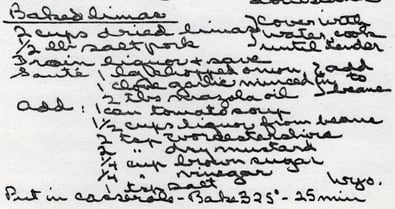 Baked limas
2 cups dried limas } Cover with
1/2 lb salt pork } water, cook
} until tender
Drain liquor + save
Sauté 1 large chopped onion } add
1 clove garlic minced } to
2 tbs oil } beans
add: 1 can tomato soup
1 1/2 cups liquor from beans
2 tsp worcestershire
2 " dry mustard
1/4 cup brown sugar
1/4 " vinegar
1 tsp salt Wyo.
Put in casserole - Bake 325° - 25 min